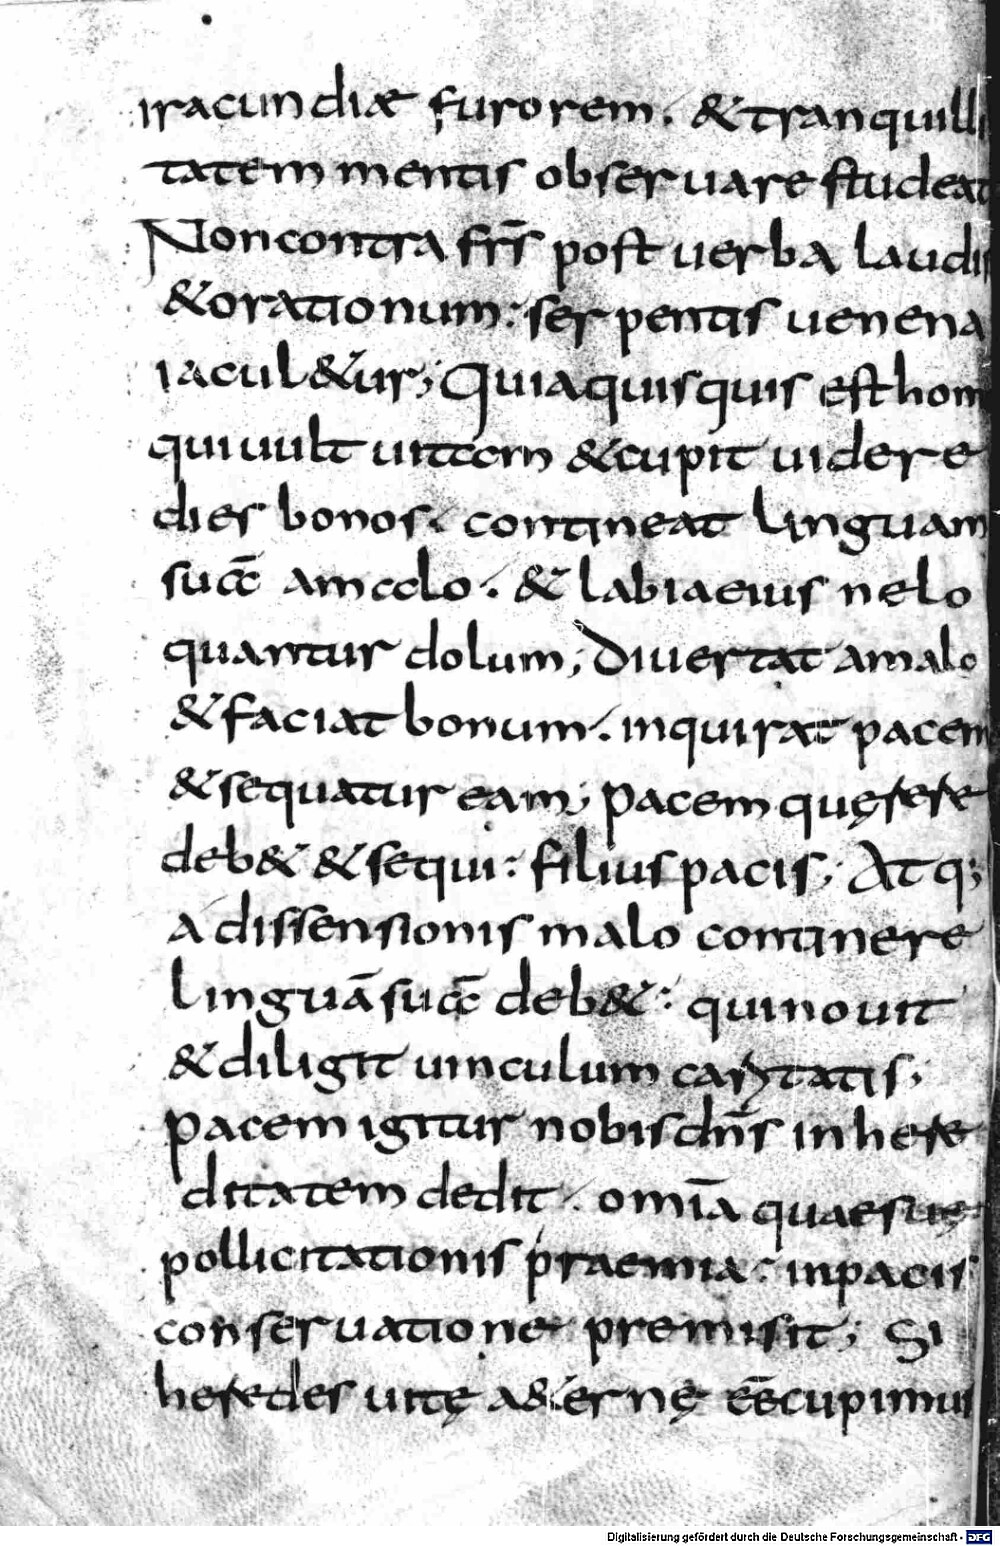 iracundiae furorem. & tranquilli
tatem mentis observare studeat
Non contra frs̄ post uerba laudis
& orationum: serpentis uenena
iacul&ur; Quia quisquis est hom
qui uult uitam & cupit uidere
dies bonos. contineat linguam
suā a malo. & labia eius ne lo
quantur dolum; Diuertat a malo
& faciat bonum. inquirat pacem
& sequatur eam; Pacem quęrere
deb& & sequi: filius pacis; Atq;
a dissensionis malo continere
linguā suā deb&: qui nouit
& diligit uinculum carytatis;
Pacem igitur nobis dn̄s in here
ditatem dedit. omīa quae suę
pollicitationis praemia: in pacis
conseruatione premisit; Si
heredes uitę a&ernę eē cupimus
Digitalisierung gefördert durch die Deutsche Forschungsgemeinschaft - DFG